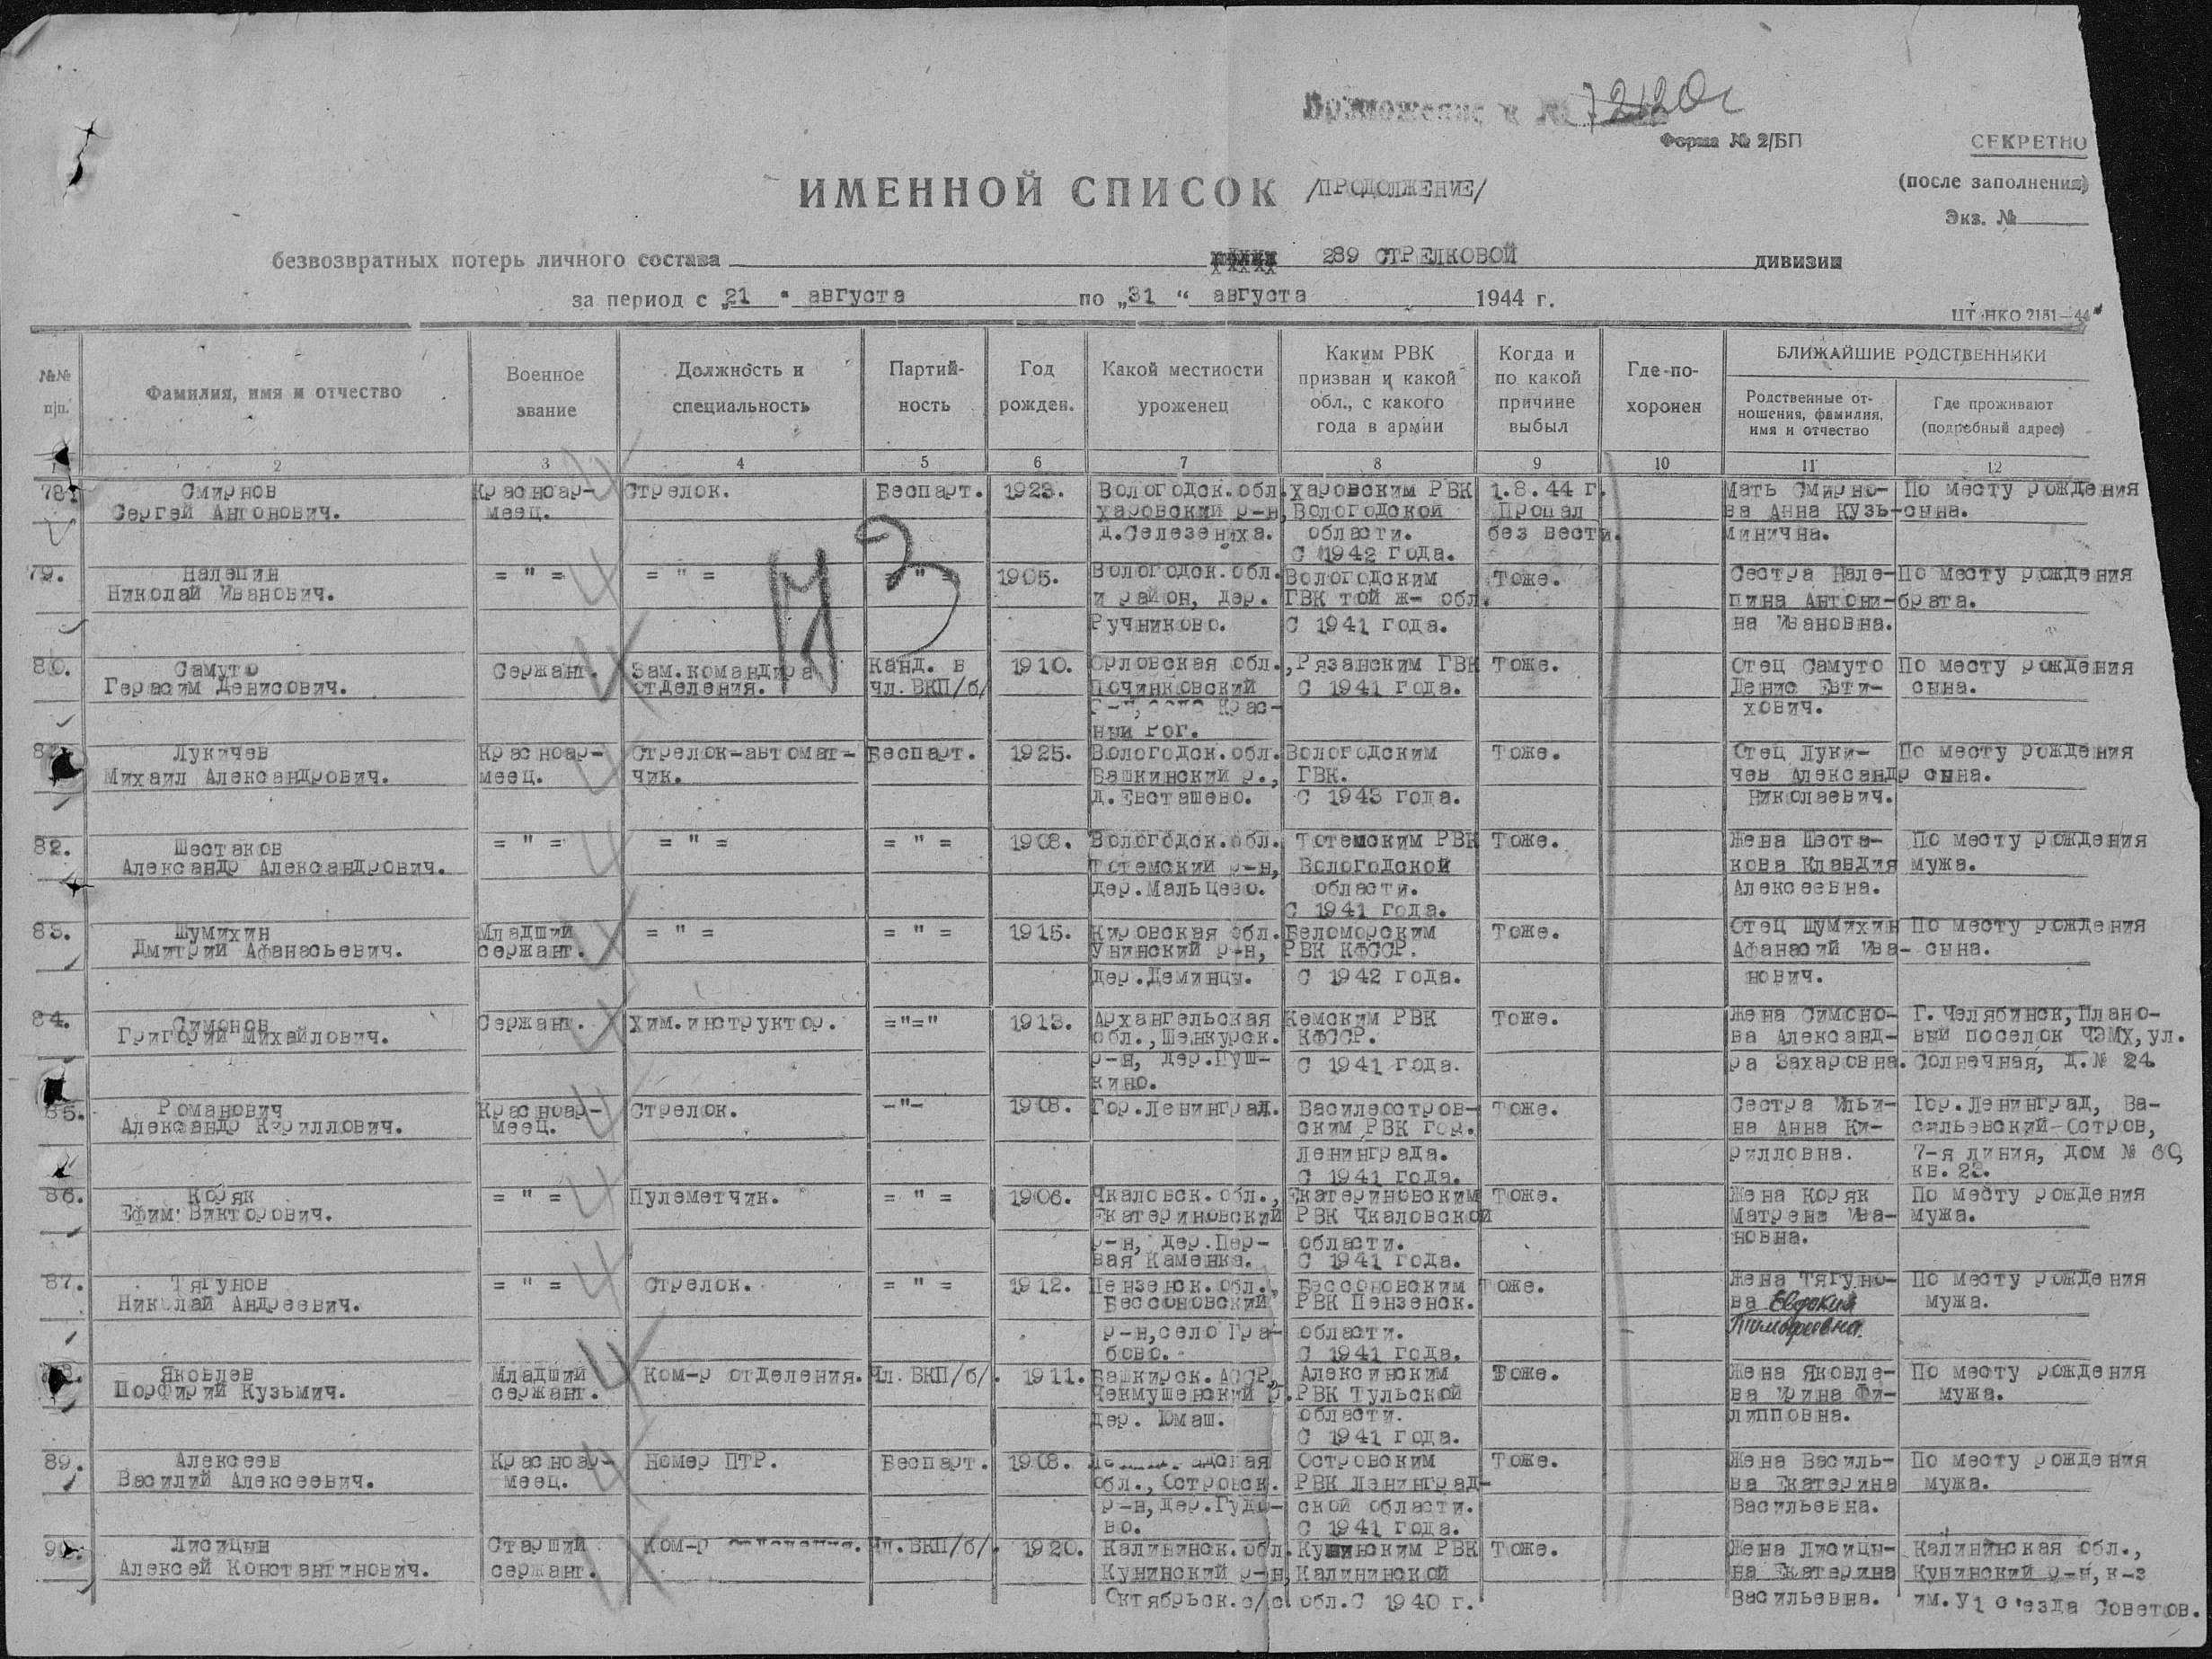 Приложение к № 72120с
Форма № 2/БП
СЕКРЕТНО
(после заполнения)
Экз. №
ИМЕННОЙ СПИСОК /ПРОДОЛЖЕНИЕ/
безвозвратных потерь личного состава 289 СТРЕЛКОВОЙ дивизии
за период с „21 " августа по „31 " августа 1944 г.
ЦТ НКО 2151—44
№№ п|п.
Фамилия, имя и отчество
Военное звание
Должность и специальность
Партий- ность
Год рожден.
Какой местности уроженец
Каким РВК призван и какой обл., с какого года в армии
Когда и по какой причине выбыл
Где по- хоронен
БЛИЖАЙШИЕ РОДСТВЕННИКИ
Родственные от- ношения, фамилия, имя и отчество
Где проживают (подробный адрес)
1 2 3 4 5 6 7 8 9 10 11 12
78. Смирнов Красноар- Стрелок. Беспарт. 1923. Вологодск.обл. Харовским РВК 1.8.44 г. Мать Смирно- По месту рождения
Сергей Антонович. меец. Харовский р-н, Вологодской Пропал ва Анна Кузь- сына.
д.Селезениха. области. без вести. минична.
С 1942 года.
79. Налепин = " = = " = = " = 1905. Вологодск.обл. Вологодским Тоже. Сестра Нале- По месту рождения
Николай Иванович. и район, дер. ГВК той ж- обл. пина Антони- брата.
Ручниково. С 1941 года. на Ивановна.
80. Самуто Сержант. Зам.командира Канд. в 1910. Орловская обл., Рязанским ГВК Тоже. Отец Самуто По месту рождения
Герасим Денисович. отделения. чл.ВКП/б/ Починковский С 1941 года. Денис Евти- сына.
р-н, село Крас- хович.
ный Рог.
81. Лукичев Красноар- Стрелок-автомат- Беспарт. 1925. Вологодск.обл. Вологодским Тоже. Отец Луки- По месту рождения
Михаил Александрович. меец. чик. Вашкинский р., ГВК. чев Александр сына.
д.Евсташево. С 1943 года. Николаевич.
82. Шестаков = " = = " = = " = 1908. Вологодск.обл. Тотемским РВК Тоже. Жена Шеста- По месту рождения
Александр Александрович. Тотемский р-н, Вологодской кова Клавдия мужа.
дер.Мальцево. области. Алексеевна.
С 1941 года.
83. Шумихин Младший = " = = " = 1915. Кировская обл. Беломорским Тоже. Отец Шумихин По месту рождения
Дмитрий Афанасьевич. сержант. Унинский р-н, РВК КФССР. Афанасий Ива- сына.
дер.Деминцы. С 1942 года. нович.
84. Симонов Сержант. Хим.инструктор. ="=" 1913. Архангельская Кемским РВК Тоже. Жена Симоно- Г.Челябинск,Плано-
Григорий Михайлович. обл.,Шенкурск. КФССР. ва Александ- вый поселок ЧЭМХ,ул.
р-н, дер.Пуш- С 1941 года. ра Захаровна. Солнечная, д.№ 24
кино.
85. Романович Красноар- Стрелок. -"- 1908. Гор.Ленинград. Василеостров- Тоже. Сестра Ильи- Гор.Ленинград, Ва-
Александр Кириллович. меец. ским РВК гор. на Анна Ки- сильевский-Остров,
Ленинграда. рилловна. 7-я линия, дом № 60,
С 1941 года. кв. 23.
86. Коряк = " = Пулеметчик. = " = 1906. Чкаловск.обл., Екатериновским Тоже. Жена Коряк По месту рождения
Ефим Викторович. Екатериновский РВК Чкаловской Матрена Ива- мужа.
р-н, дер.Пер- области. новна.
вая Каменка. С 1941 года.
87. Тягунов = " = Стрелок. = " = 1912. Пензенск.обл., Бессоновским Тоже. Жена Тягуно- По месту рождения
Николай Андреевич. Бессоновский РВК Пензенск. ва Евдокия мужа.
р-н,село Гра- области. Тимофеевна.
бово. С 1941 года.
88. Яковлев Младший Ком-р отделения. Чл.ВКП/б/. 1911. Башкирск.АССР, Алексинским Тоже. Жена Яковле- По месту рождения
Порфирий Кузьмич. сержант. Чекмушевский р. РВК Тульской ва Ирина Фи- мужа.
дер. Юмаш. области. липповна.
С 1941 года.
89. Алексеев Красноар- Номер ПТР. Беспарт. 1908. Ленинградская Островским Тоже. Жена Василь- По месту рождения
Василий Алексеевич. меец. обл.,Островск. РВК Ленинград- ва Екатерина мужа.
р-н,дер.Гудо- ской области. Васильевна.
во. С 1941 года.
90. Лисицын Старший Ком-р отделения. Чл.ВКП/б/. 1920. Калининск.обл. Кунинским РВК Тоже. Жена Лисицы- Калининская обл.,
Алексей Константинович. сержант. Кунинский р-н, Калининской на Екатерина Кунинский р-н,к-з
Октябрьск.с/с обл.С 1940 г. Васильевна. им.У1 с'езда Советов.